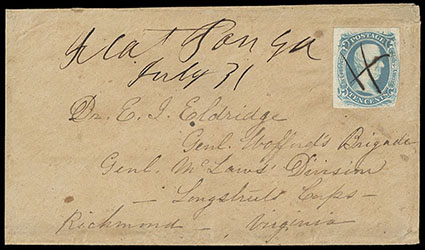 July 31
Dr. E. J. Eldridge
Genl. Wofford's Brigade
Genl. McLaws' Division
- Longstreets Corps -
Richmond - Virginia
POSTAGE
TEN CENTS